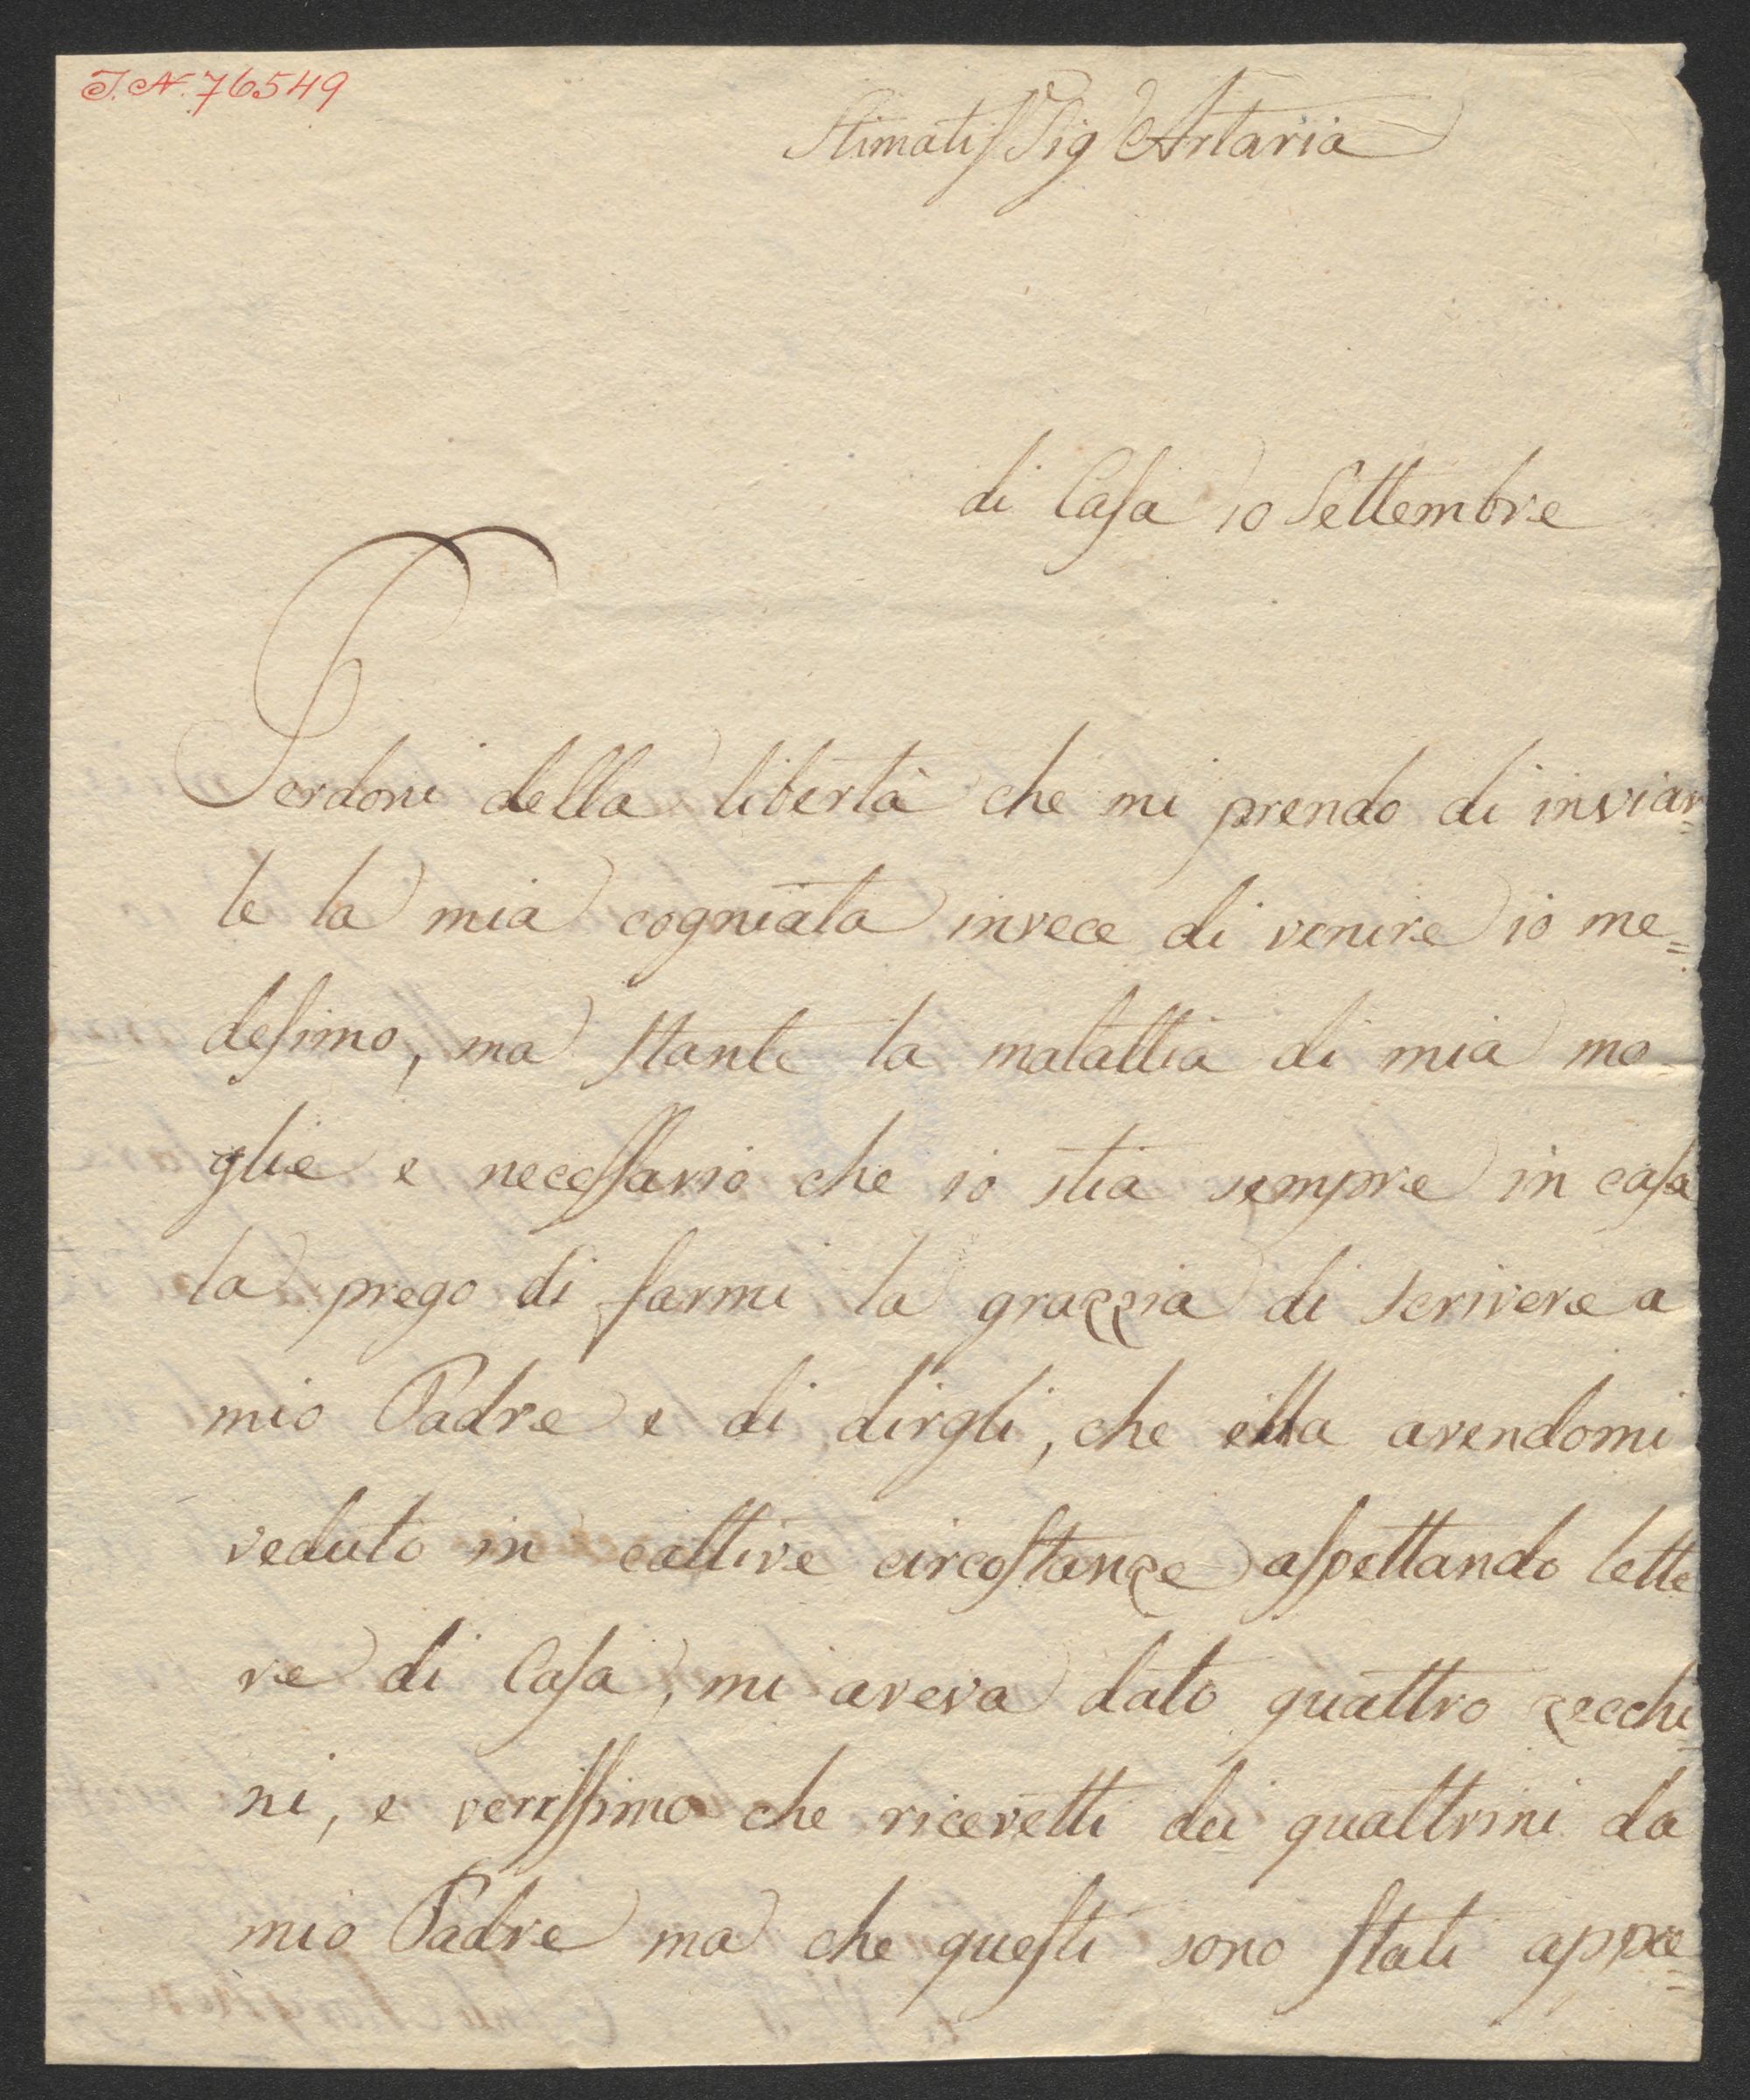 I.N. 76549
Stimatiſs Sig Artaria
di Caſa 10 Settembre
Perdoni della libertà che mi prendo di inviar=
le la mia cogniata invece di venire io me=
deſimo, ma ſtante la malattia di mia mo
glie e neceſſario che io stia sempre in caſa
la prego di farmi la grazzia di scrivere a
mio Padre e di dirgli, che ella avendomi
veduto in cattive circoſtanze aſpettando lette
re di Caſa, mi aveva dato quattro zecchi
ni, e veriſſimo che ricevetti dei quattrini da
mio Padre ma che queſti sono ſtati appe=